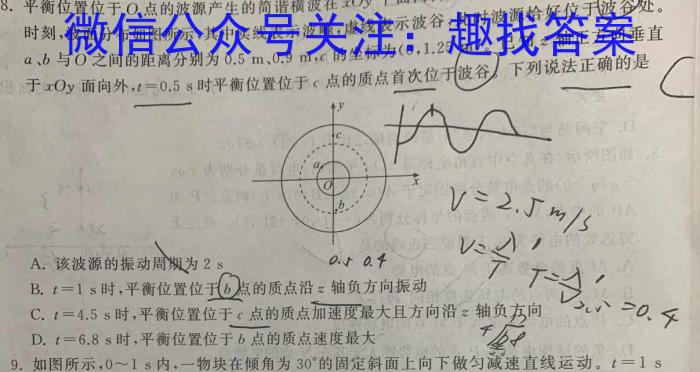 8. 平衡位置位于 O 点的波源产生的简谐横波在 xOy 平
波源恰好位于波谷处。
时刻,
实线表示波
虚线表示波谷,
微信公众号关注：趣找答案
a、b 与 O 之间的距离分别为 0.5 m、0.9 m, c 的坐标为(0,1.25
垂直
于 xOy 面向外, t=0.5 s 时平衡位置位于 c 点的质点首次位于波谷。下列说法正确的是
y
c
a
O
x
b
V=2.5m/s
0.5 0.4
A. 该波源的振动周期为 2 s
B. t=1 s 时,平衡位置位于 b 点的质点沿 z 轴负方向振动
C. t=4.5 s 时,平衡位置位于 c 点的质点加速度最大且方向沿 z 轴负方向
=0.4
D. t=6.8 s 时,平衡位置位于 b 点的质点速度最大
9. 如图所示,0~1 s 内,一物块在倾角为 30°的固定斜面上向下做匀减速直线运动。t=1 s